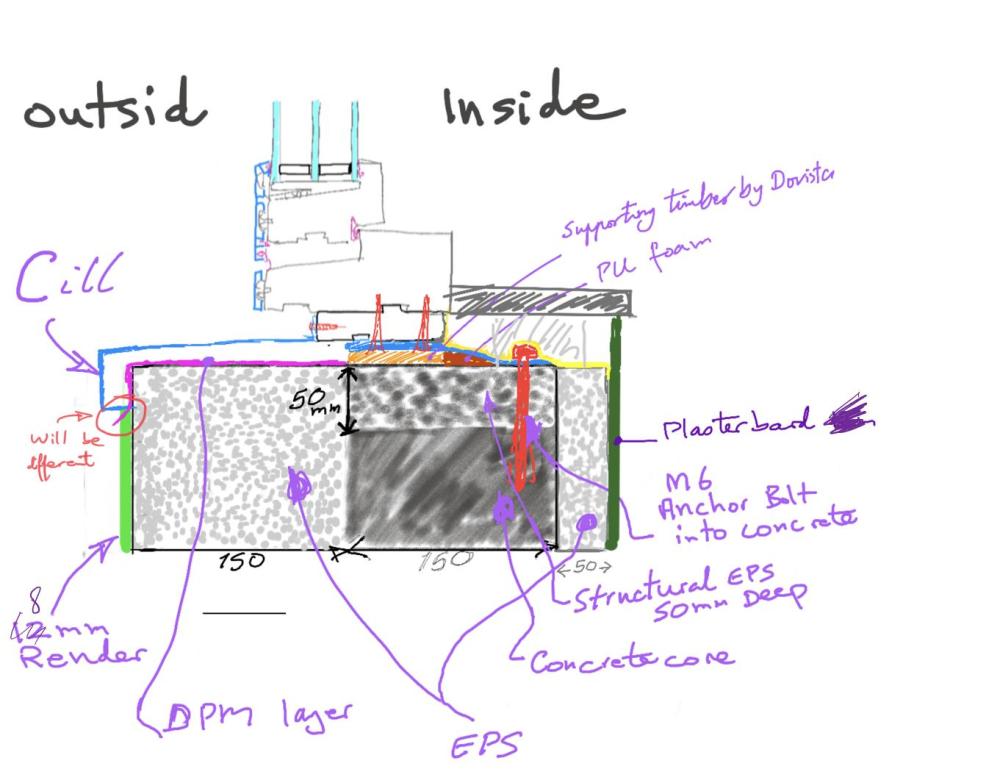 outsid
Inside
Supporting timber by Dovista
PU foam
Cill
50
mm
will be
different
Plasterboard
M6
Anchor Bolt
into concrete
150
150
50
Structural EPS
50mm Deep
8
12mm
Render
Concrete core
DPM layer
EPS